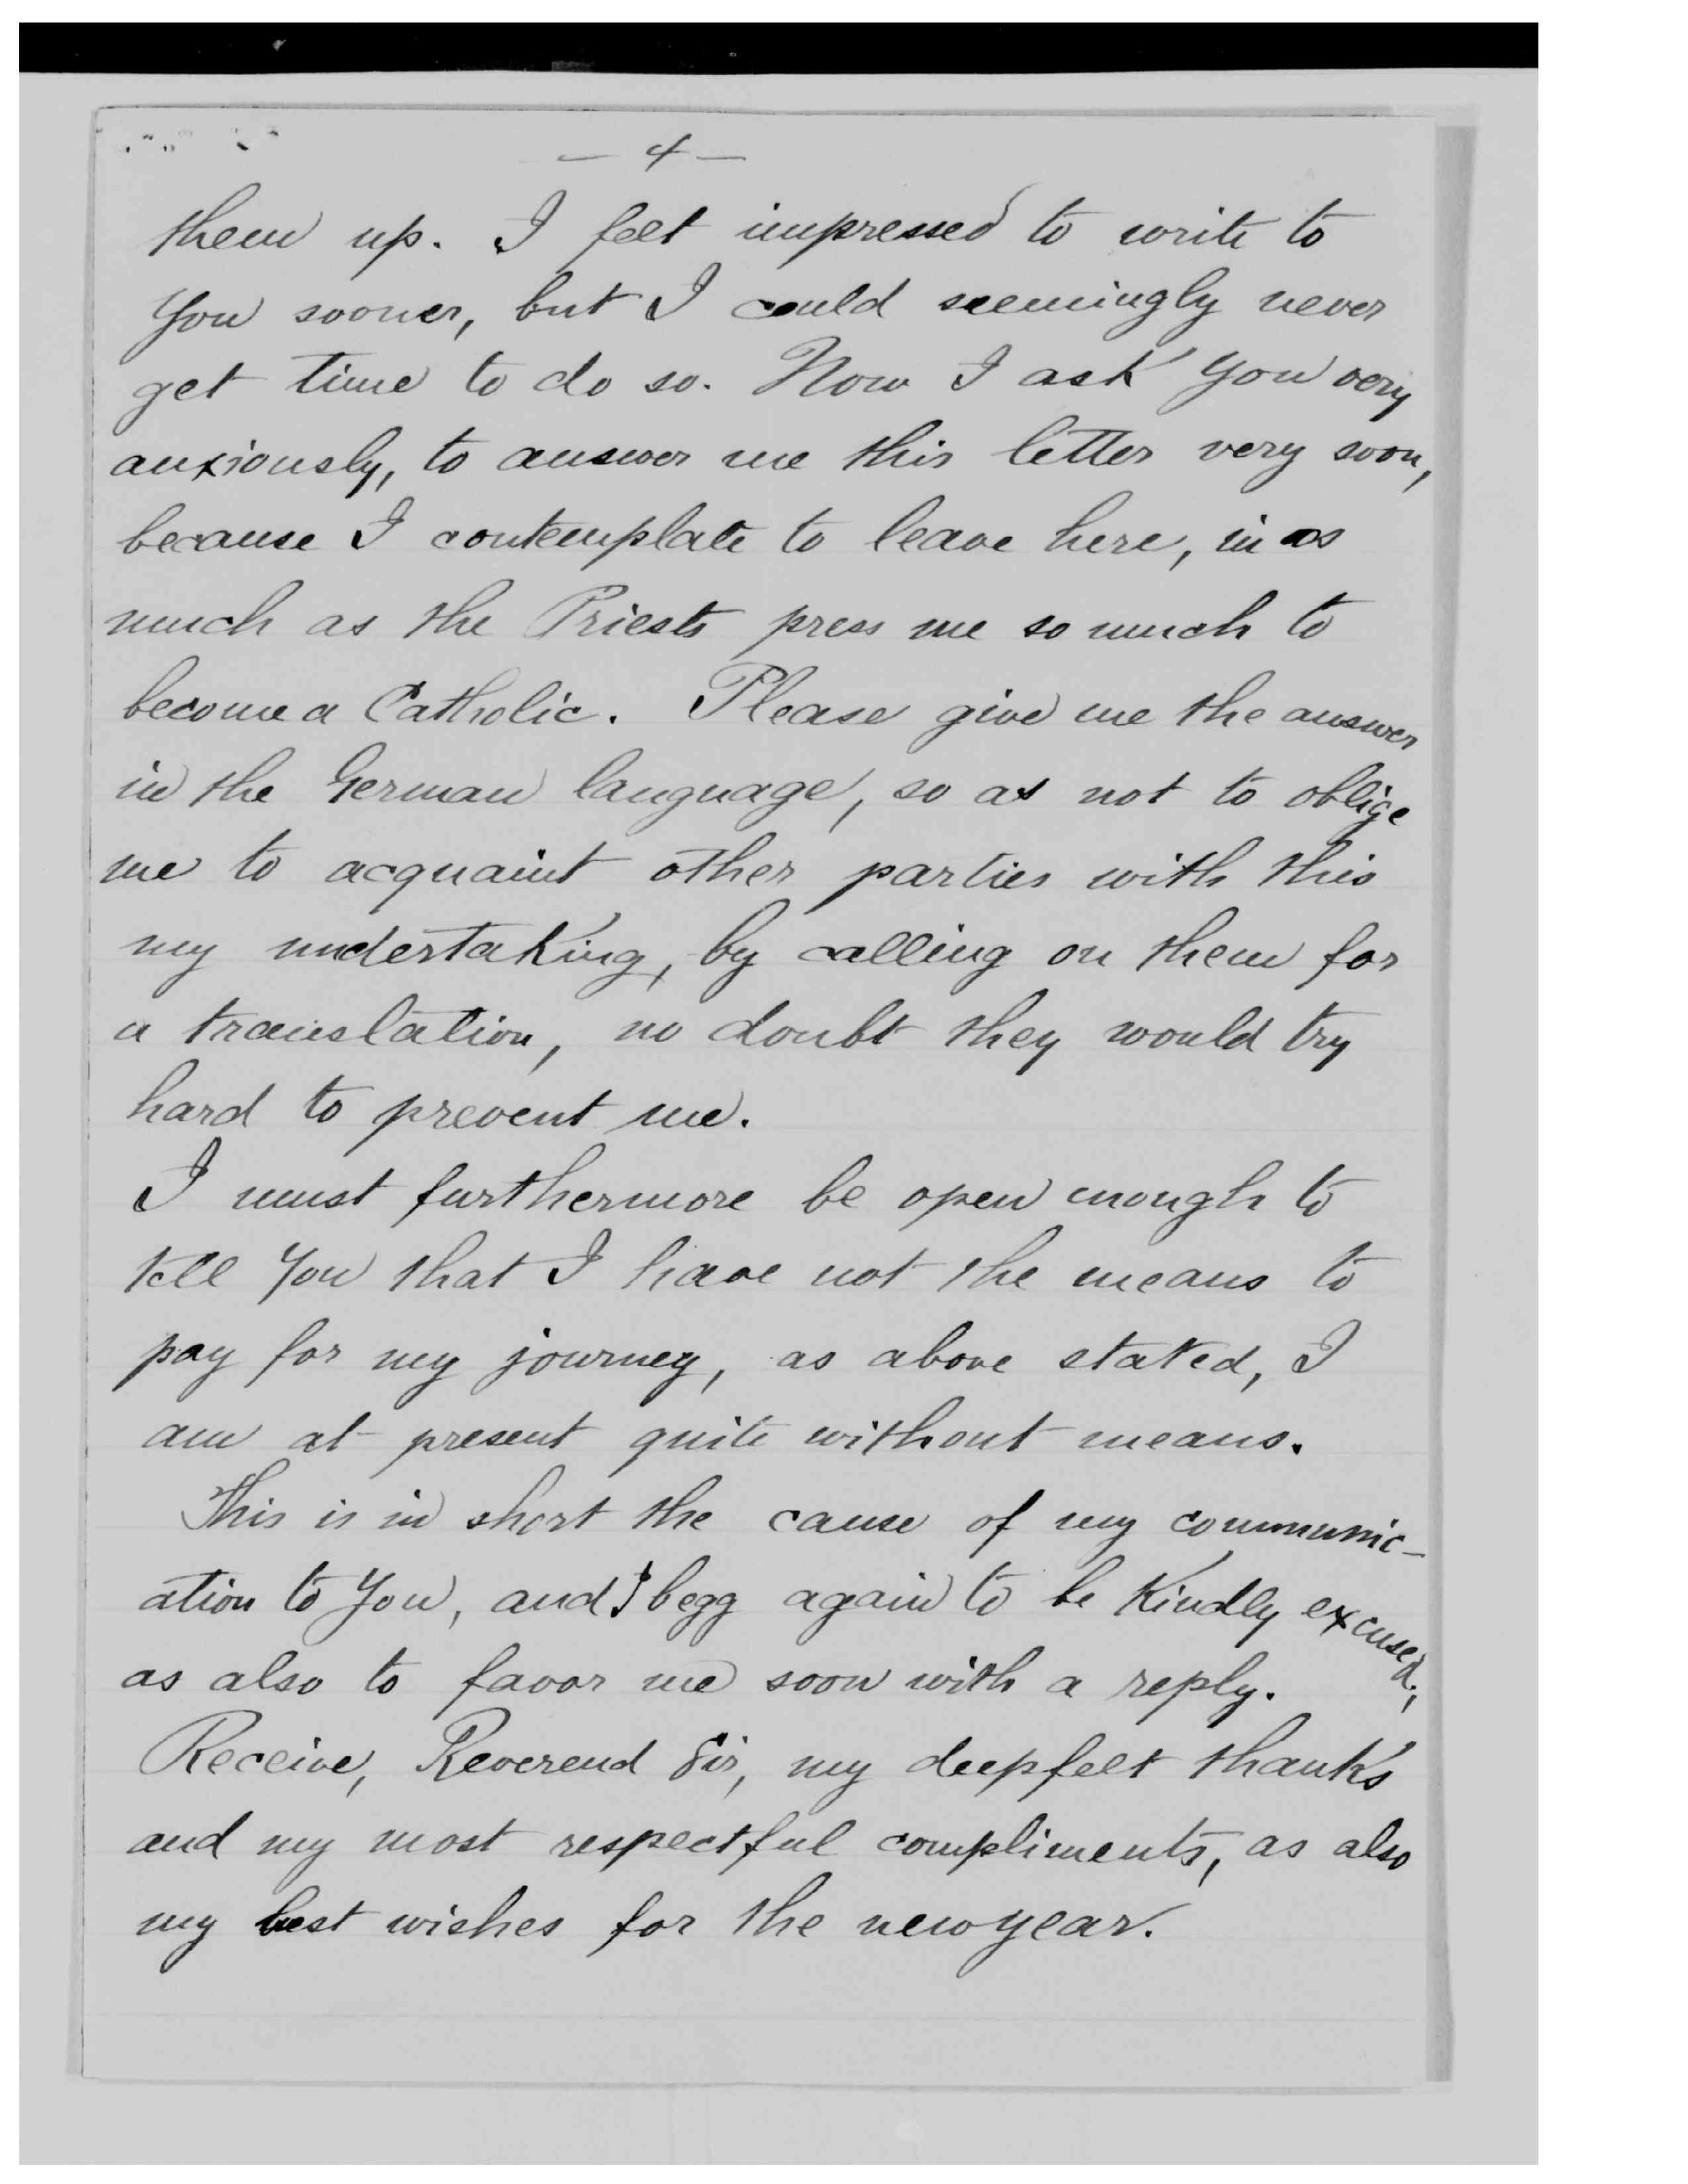 — 4 —
them up. I felt impressed to write to
You sooner, but I could seemingly never
get time to do so. Now I ask You very
anxiously, to answer me this letter very soon,
because I contemplate to leave here, in as
much as the Priests press me so much to
become a Catholic. Please give me the answer
in the German language, so as not to oblige
me to acquaint other parties with this
my undertaking, by calling on them for
a translation, no doubt they would try
hard to prevent me.
I must furthermore be open enough to
tell You that I have not the means to
pay for my journey, as above stated, I
am at present quite without means.
This is in short the cause of my communic-
ation to You, and I begg again to be Kindly excused,
as also to favor me soon with a reply.
Receive, Reverend Sir, my deepfelt thanks
and my most respectful compliments, as also
my best wishes for the newyear.